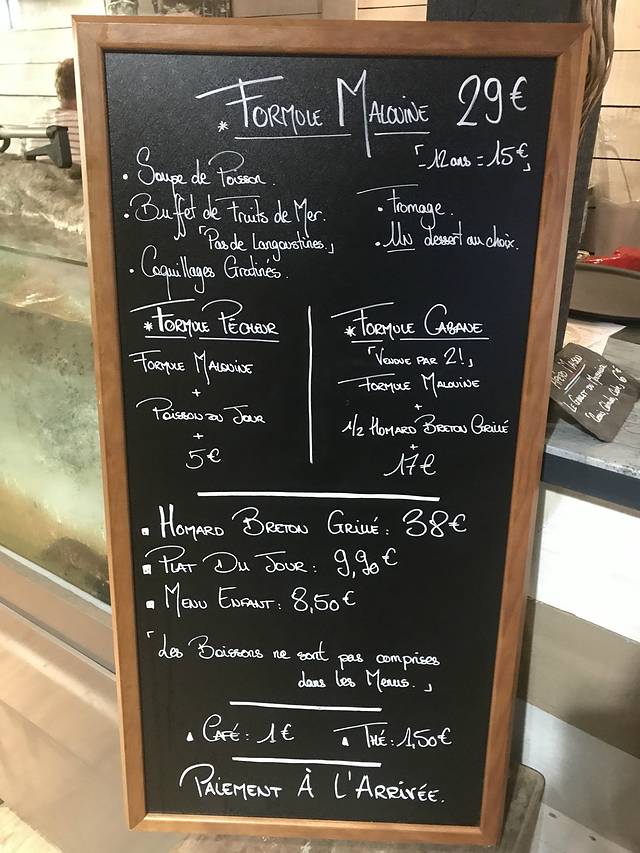 * Formule Malouine 29€
「-12 ans = 15€」
• Soupe de Poisson.
• Buffet de Fruits de Mer.
「Pas de Langoustines.」
• Coquillages Gratinés.
• Fromage.
• UN dessert au choix.
* Formule Pêcheur
Formule Malouine
+
Poisson du Jour
+
5€
* Formule Cabane
「Vendue par 2!」
Formule Malouine
+
1/2 Homard Breton Grillé
+
17€
▪ Homard Breton Grillé : 38€
▪ Plat Du Jour : 9,90€
▪ Menu Enfant : 8,50€
「Les Boissons ne sont pas comprises
dans les Menus.」
▲ Café : 1€ ▲ Thé : 1,50€
Paiement À L'Arrivée.